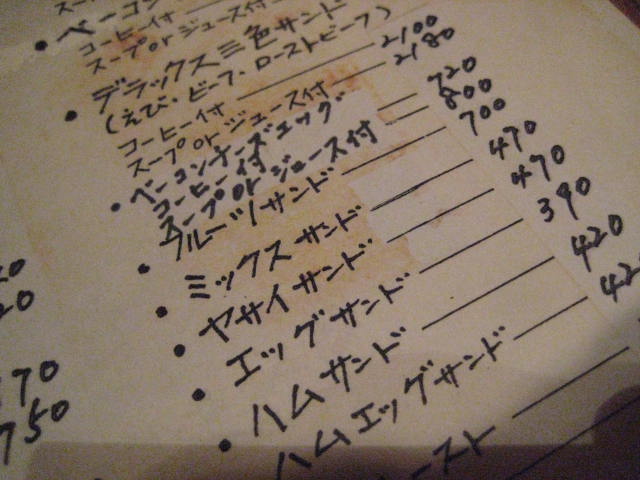 ・ベーコン
コーヒー付
スープorジュース付
・デラックス三色サンド
(えび・ビーフ・ローストビーフ)
コーヒー付 2100
スープorジュース付 2180
・ベーコンチーズエッグ
コーヒー付 720
スープorジュース付 800
・フルーツサンド 700
・ミックスサンド 470
・ヤサイサンド 470
・エッグサンド 390
・ハムサンド 420
ハムエッグサンド 42
ースト
20
70
750